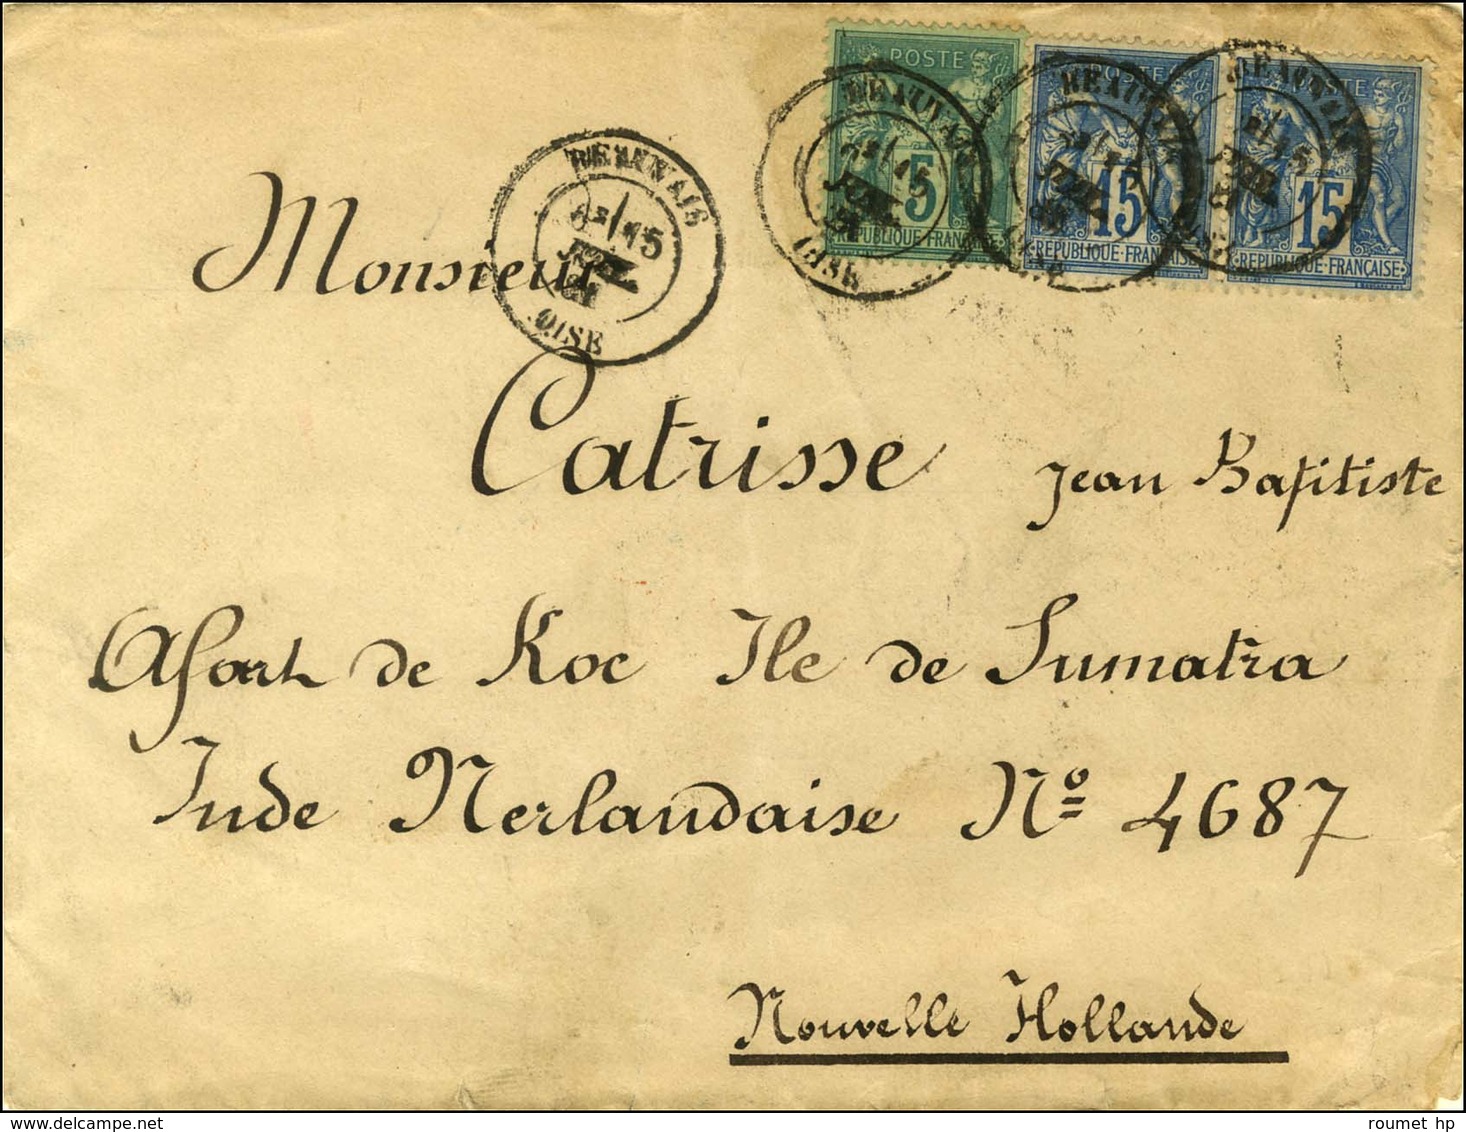 POSTE
POSTE
POSTE
5
15
15
RÉPUBLIQUE FRANÇAISE
RÉPUBLIQUE FRANÇAISE
RÉPUBLIQUE FRANÇAISE
BEAUVAIS
OISE
BEAUVAIS
OISE
BEAUVAIS
BEAUVAIS
Monsieur
Catrisse Jean Baptitiste
Afort de Koc Ile de Sumatra
Inde Nerlandaise Nº 4687
Nouvelle Hollande
roumet hp